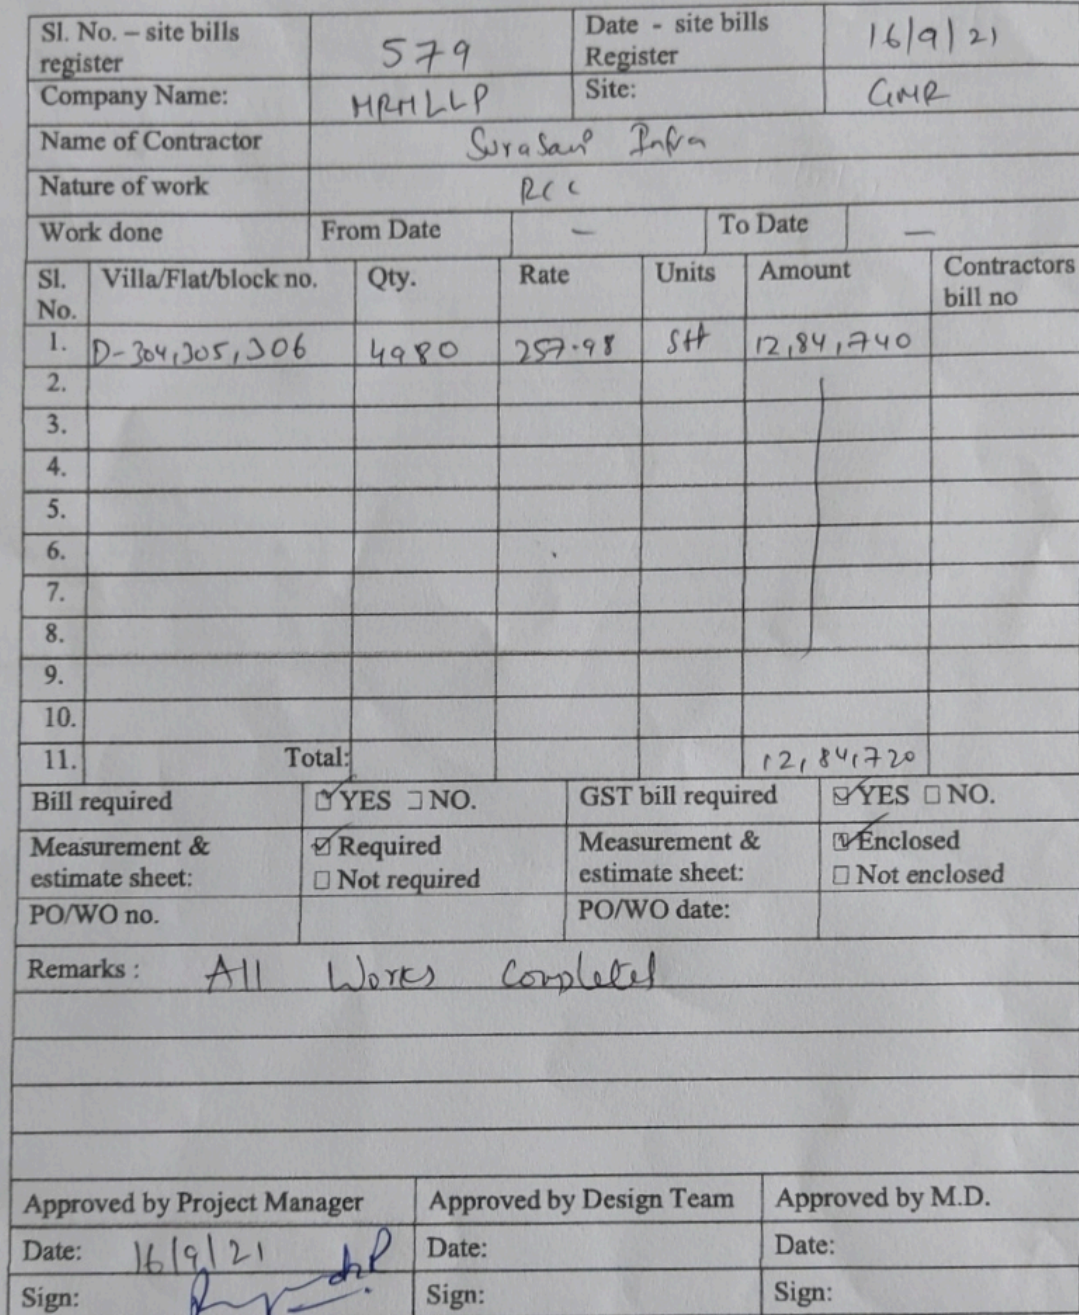 Sl. No. – site bills register 579 Date - site bills Register 16/9/21
Company Name: MRMLLP Site: GMR
Name of Contractor Surasani Infra
Nature of work RCC
Work done From Date – To Date –
Sl. No. Villa/Flat/block no. Qty. Rate Units Amount Contractors bill no
1. D-304,305,306 4980 257.98 Sft 12,84,740
2.
3.
4.
5.
6.
7.
8.
9.
10.
11. Total: 12,84,720
Bill required ☑ YES ☐ NO. GST bill required ☑ YES ☐ NO.
Measurement & estimate sheet: ☑ Required ☐ Not required Measurement & estimate sheet: ☑ Enclosed ☐ Not enclosed
PO/WO no. PO/WO date:
Remarks : All Works Completed
Approved by Project Manager Approved by Design Team Approved by M.D.
Date: 16/9/21 Date: Date:
Sign: Sign: Sign: